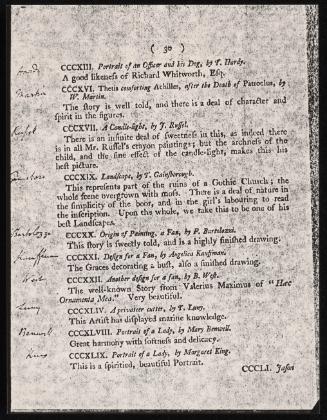 ( 30 )
CCCXIII. Portrait of an Officer and his Dog, by T. Hardy.
A good likeness of Richard Whitworth, Esq.
CCCXVI. Thetis comforting Achilles, after the Death of Patroclus, by
W. Martin.
The story is well told, and there is a deal of character and
spirit in the figures.
CCCXVII. A Candle-light, by J. Russel.
There is an infinite deal of sweetness in this, as indeed there
is in all Mr. Russel's crayon paintings; but the archness of the
child, and the fine effect of the candle-light, makes this his
best picture.
CCCXIX. Landscape, by T. Gainsborough.
This represents part of the ruins of a Gothic Church; the
whole scene overgrown with moss. There is a deal of nature in
the simplicity of the boor, and in the girl's labouring to read
the inscription. Upon the whole, we take this to be one of his
best Landscapes.
CCCXX. Origin of Painting, a Fan, by P. Bartolozzi.
This story is sweetly told, and is a highly finished drawing.
CCCXXI. Design for a Fan, by Angelica Kaufman.
The Graces decorating a bust, also a finished drawing.
CCCXXII. Another design for a fan, by B. West.
The well-known Story from Valerius Maximus of "Hæc
Ornamenta Mea." Very beautiful.
CCCXLIV. A privateer cutter, by T. Luny.
This Artist has displayed marine knowledge.
CCCXLVIII. Portrait of a Lady, by Mary Benwell.
Great harmony with softness and delicacy.
CCCXLIX. Portrait of a Lady, by Margaret King.
This is a spirited, beautiful Portrait.
CCCLI. Jason
Hardy
Martin
Russel
Bartolozzi
Kauffman
West
Luny
Benwell
King